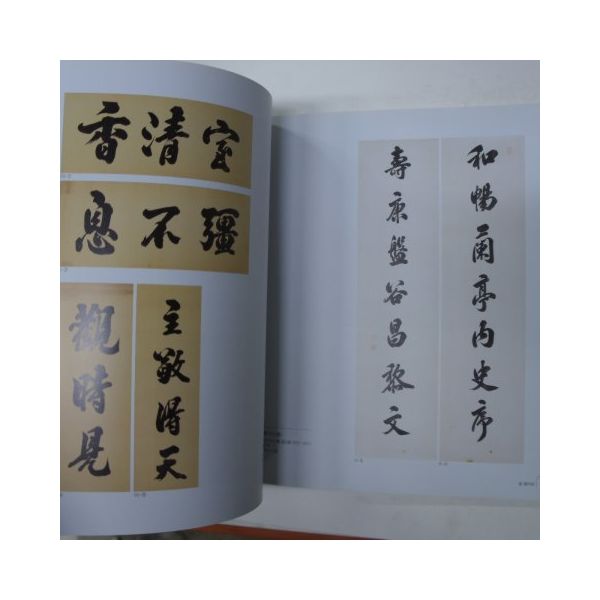 室清香
彊不息
主敬得天
觀時見
和暢蘭亭內史序
壽康盤谷昌黎文